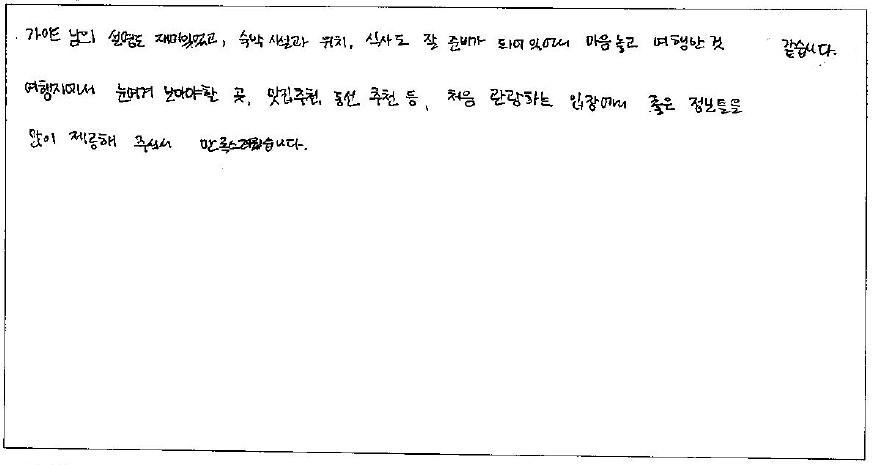 가이드 님의 설명도 재미있었고, 숙박 시설과 위치, 식사도 잘 준비가 되어 있어서 마음놓고 여행한 것 같습니다.
여행지에서 눈여겨 보아야할 곳, 맛집추천, 동선 추천 등, 처음 관람하는 입장에서 좋은 정보들을
많이 제공해 주셔서 만족스러웠습니다.